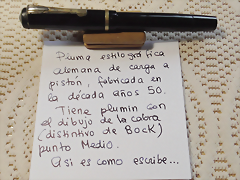 Pluma estilográfica
alemana de carga a
pistón, fabricada en
la década años 50.
Tiene plumin con
el dibujo de la cabra
(distintivo de Bock)
punto Medio.
Asi es como escribe...